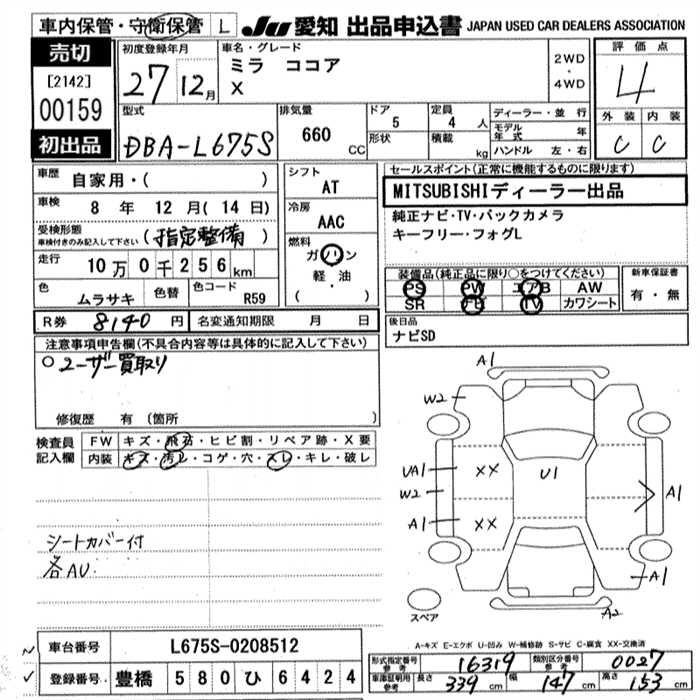 車内保管・守衛保管 L JU 愛知 出品申込書 JAPAN USED CAR DEALERS ASSOCIATION
売切
[2142]
00159
初出品
初度登録年月
27 12月
車名・グレード
ミラ ココア
X
2WD
・
4WD
評価点
4
外装 内装
C C
型式
DBA-L675S
排気量
660 CC
ドア 5
形状
定員 4 人
積載 kg
ディーラー・並行
モデル年式 年
ハンドル 左・右
車歴
自家用・( )
車検 8 年 12 月(14 日)
受検形態
車検付きのみ記入して下さい (指定整備)
走行 10 万 0 千 2 5 6 km
色 ムラサキ
色替
色コード R59
シフト
AT
冷房
AAC
燃料
ガソリン
軽・油
( )
セールスポイント(正常に機能するものに限ります)
MITSUBISHIディーラー出品
純正ナビ・TV・バックカメラ
キーフリー・フォグL
装備品(純正品に限り○をつけてください)
PS PW エアB AW
SR TV カワシート
新車保証書
有・無
後日品
ナビSD
R券 8140 円 名変通知期限 月 日
注意事項申告欄(不具合内容等は具体的に記入して下さい)
○ユーザー買取り
修復歴 有 (箇所 )
検査員記入欄
FW キズ・飛石・ヒビ割・リペア跡・X要
内装 キズ・汚レ・コゲ・穴・スレ・キレ・破レ
シートカバー付
各AU
A1
W2
UA1 XX U1
W2 A1
A1 XX
A1
スペア A2
A-キズ E-エクボ U-凹み W-補修跡 S-サビ C-腐食 XX-交換済
車台番号 L675S-0208512
登録番号 豊橋 580 ひ 6424
形式指定番号 参考 16319 類別区分番号 参考 0027
車庫証明用 参考 長さ 339 cm 幅 147 cm 高さ 153 cm